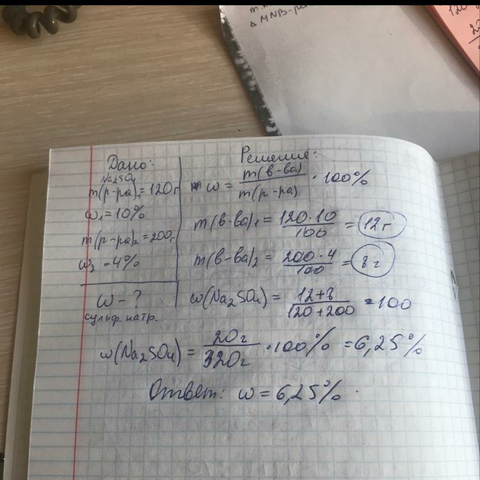 Дано:
Na₂SO₄
m(р-ра)₁ = 120 г
ω₁ = 10%
m(р-ра)₂ = 200г
ω₂ - 4%
ω - ?
сульф. натр.
Решение:
ω = m(в-ва) / m(р-ра) · 100%
m(в-ва)₁ = 120·10 / 100 = 12 г
m(в-ва)₂ = 200·4 / 100 = 8 г
ω(Na₂SO₄) = 12+8 / 120+200 · 100
ω(Na₂SO₄) = 20г / 320г · 100% = 6,25%
Ответ: ω = 6,25%
△ MNB-
120